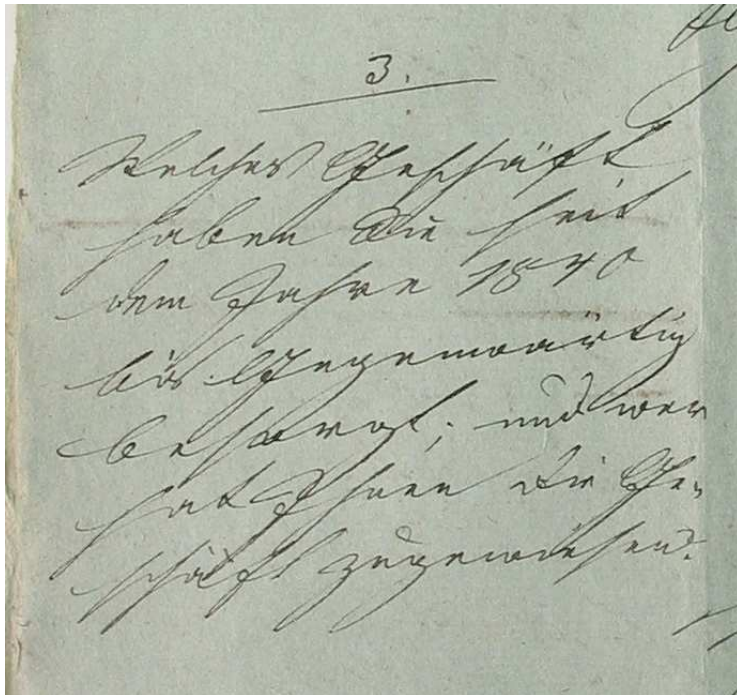 3.
Welches Geschäft
haben Sie seit
dem Jahre 1840
bis Gegenwärtig
besorgt; und wer
hat Ihnen die Ge-
schäft zugewiesen?